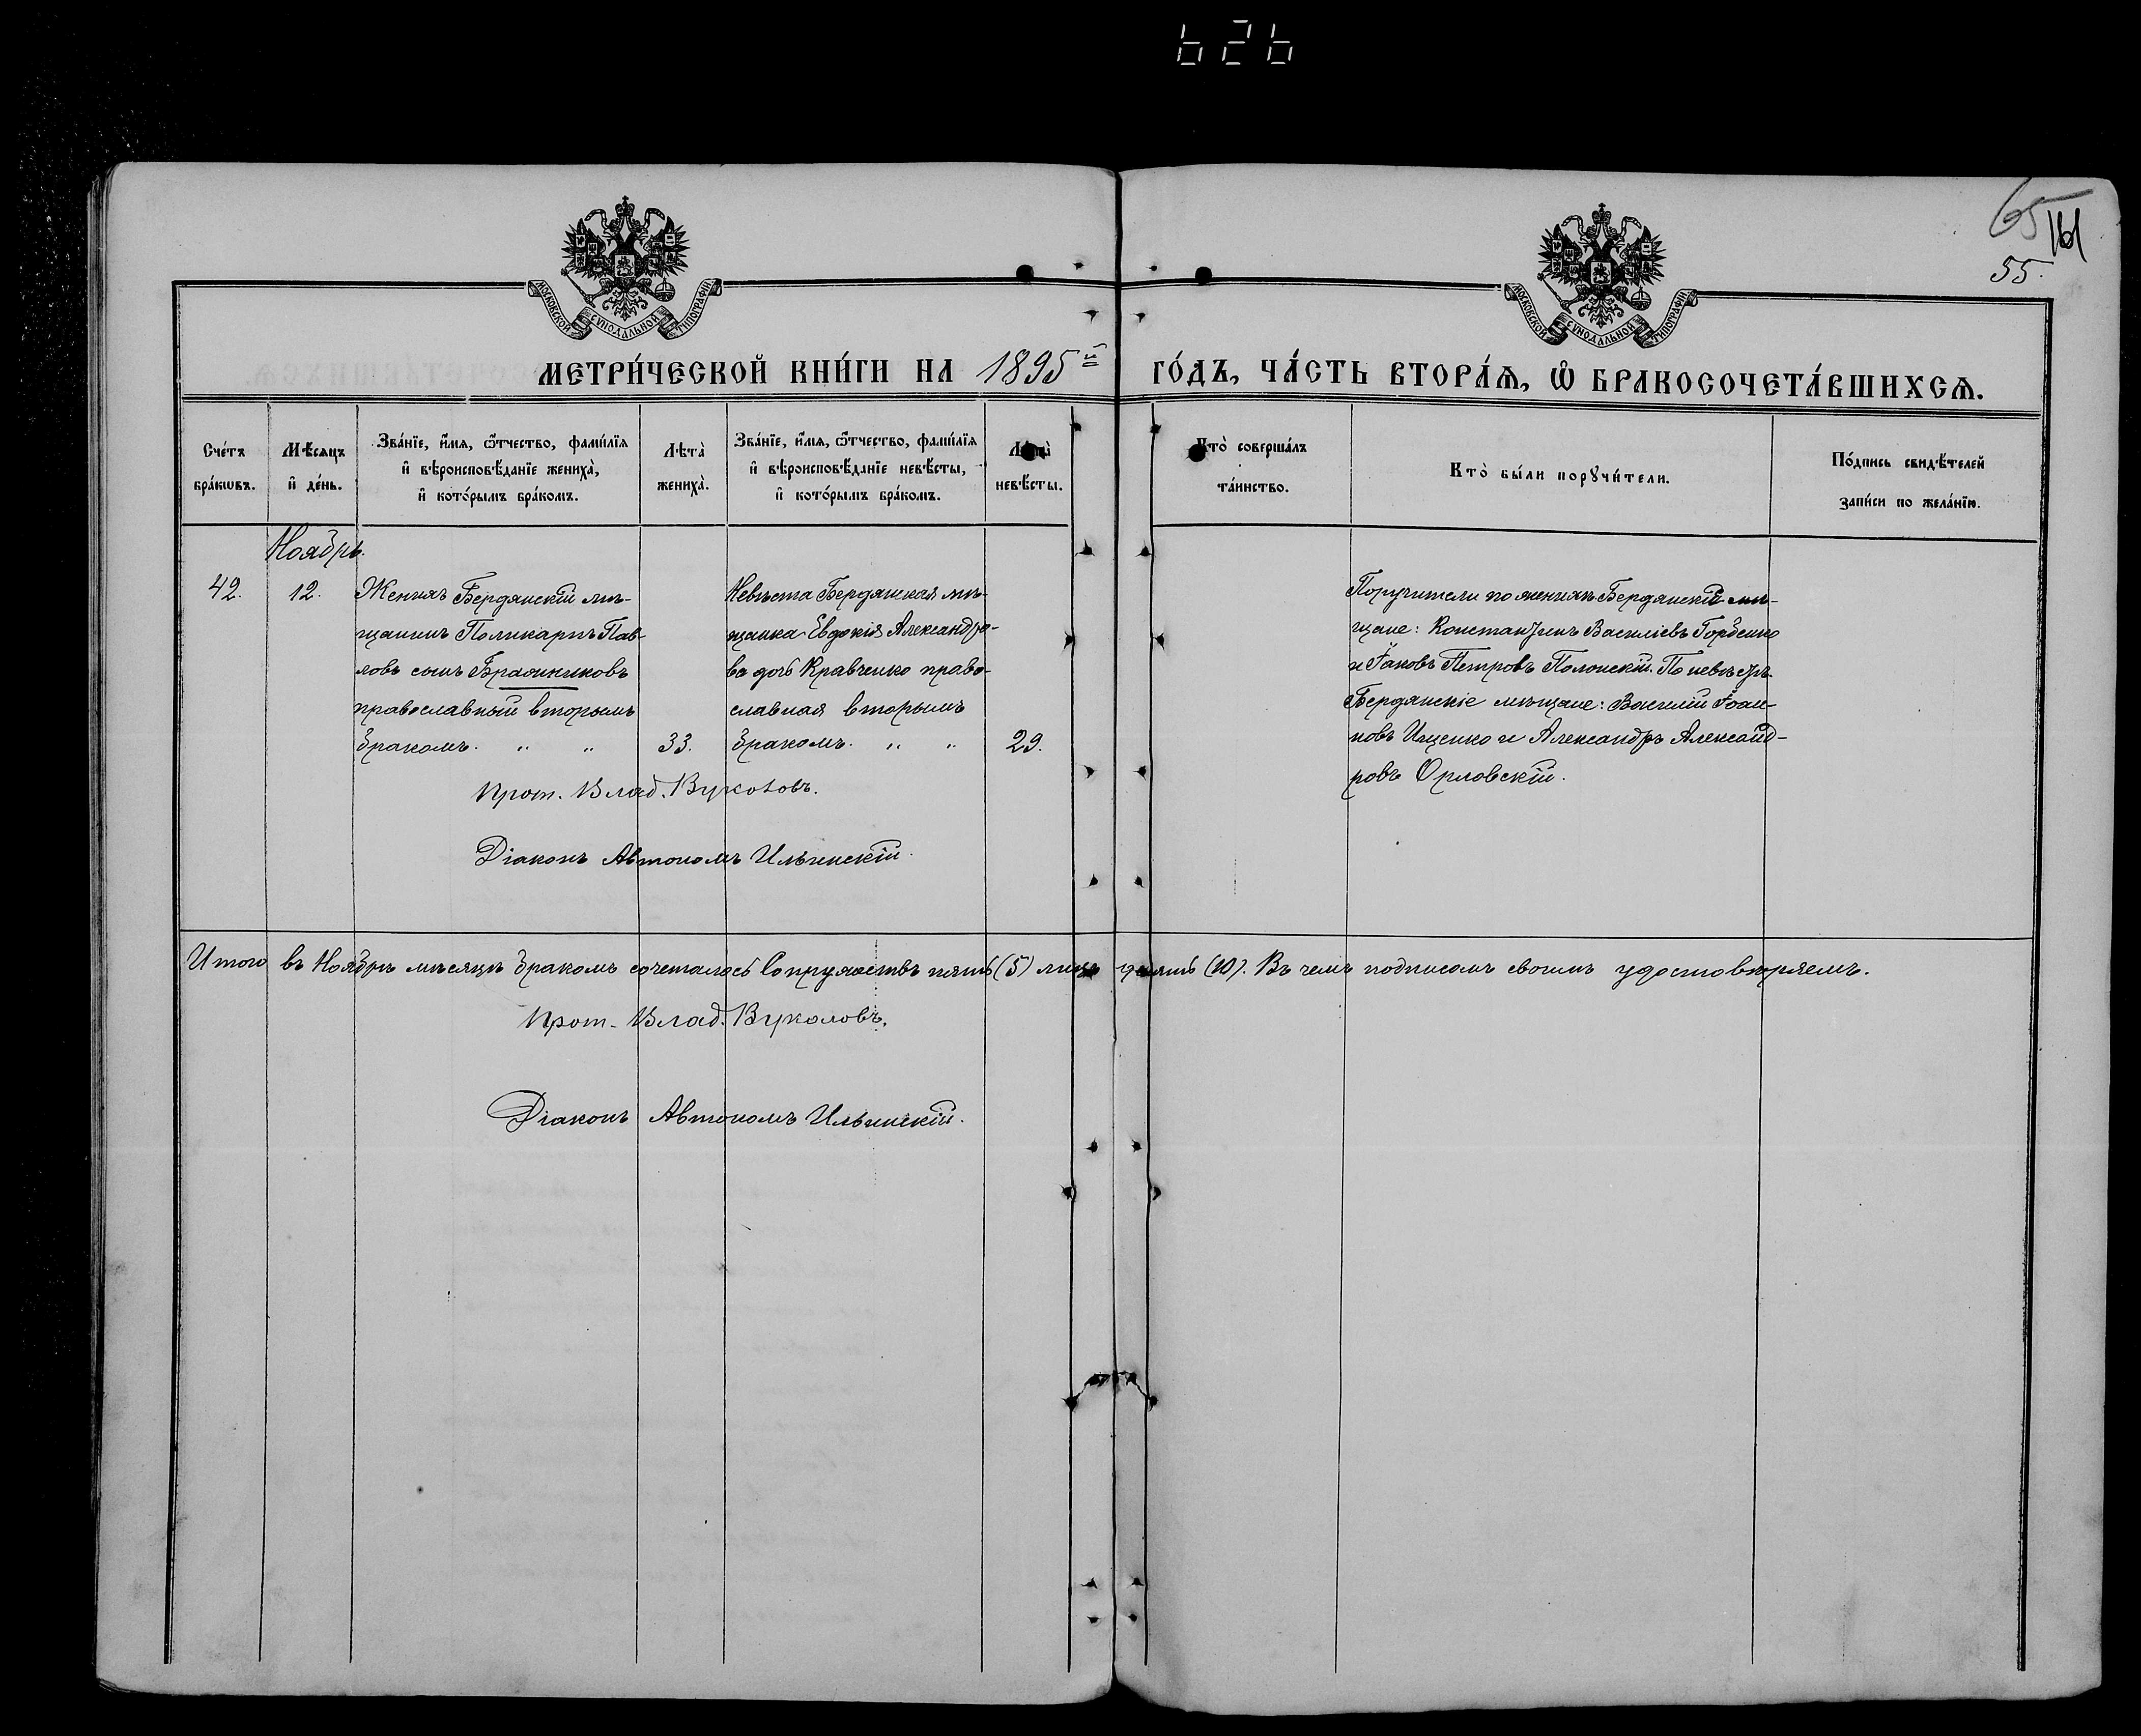 626
65 161
55.
МОСКОВСКОЙ СУНОДАЛЬНОЙ ТИПОГРАФІИ
МОСКОВСКОЙ СУНОДАЛЬНОЙ ТИПОГРАФІИ
МЕТРИ́ЧЕСКОЙ КНИ́ГИ НА 1895й ГО́ДЪ, ЧА́СТЬ ВТОРА́Ѧ, Ѽ БРАКОСОЧЕТА́ВШИХСѦ.
Сче́тъ бра́кѡвъ.
Мѣ́сяцъ и҆ де́нь.
Зва́нїе, и҆́мя, ѻ҆́тчество, фами́лїя и҆ вѣроисповѣ́данїе жениха̀, и҆ кото́рымъ бра́комъ.
Лѣта̀ жениха̀.
Зва́нїе, и҆́мя, ѻ҆́тчество, фами́лїя и҆ вѣроисповѣ́данїе невѣ́сты, и҆ кото́рымъ бра́комъ.
Лѣта̀ невѣ́сты.
Кто̀ соверша́лъ та́инство.
Кто̀ бы́ли порꙋчи́тели.
По́дпись свидѣ́телей за́писи по жела́нїю.
Ноябрь.
42.
12.
Женихъ Бердянскій мѣ-
щанинъ Поликарпъ Пав-
ловъ сынъ Бражниковъ
православный вторымъ
бракомъ. „ „
33.
Невѣста Бердянская мѣ-
щанка Евдокія Александро-
ва дочь Кравченко право-
славная вторымъ
бракомъ. „ „
29.
Поручители по женихѣ Бердянскій мѣ-
щане: Константинъ Василіевъ Горбенко
и Іаковъ Петровъ Полонскій. По невѣстѣ
Бердянскіе мѣщане: Василій Іоан-
новъ Ищенко и Александръ Александ-
ровъ Орловскій.
Прот. Влад. Вуколовъ.
Діаконъ Автономъ Ильинскій.
Итого въ Ноябрѣ мѣсяцѣ бракомъ сочеталось супружествъ пять (5) лицъ десять (10). Въ чемъ подписомъ своимъ удостовѣряемъ.
Прот. Влад. Вуколовъ.
Діаконъ Автономъ Ильинскій.